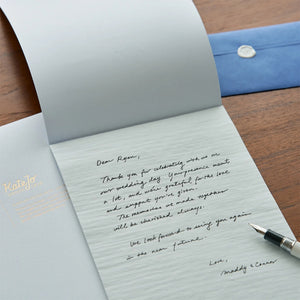 KateJo
Dear Ryan,
Thank you for celebrating with us on
our wedding day. Your presence meant
a lot, and we're grateful for the love
and support you've given.
The memories we made together
will be cherished always.
We look forward to seeing you again
in the near future.
Love,
Maddy & Connor